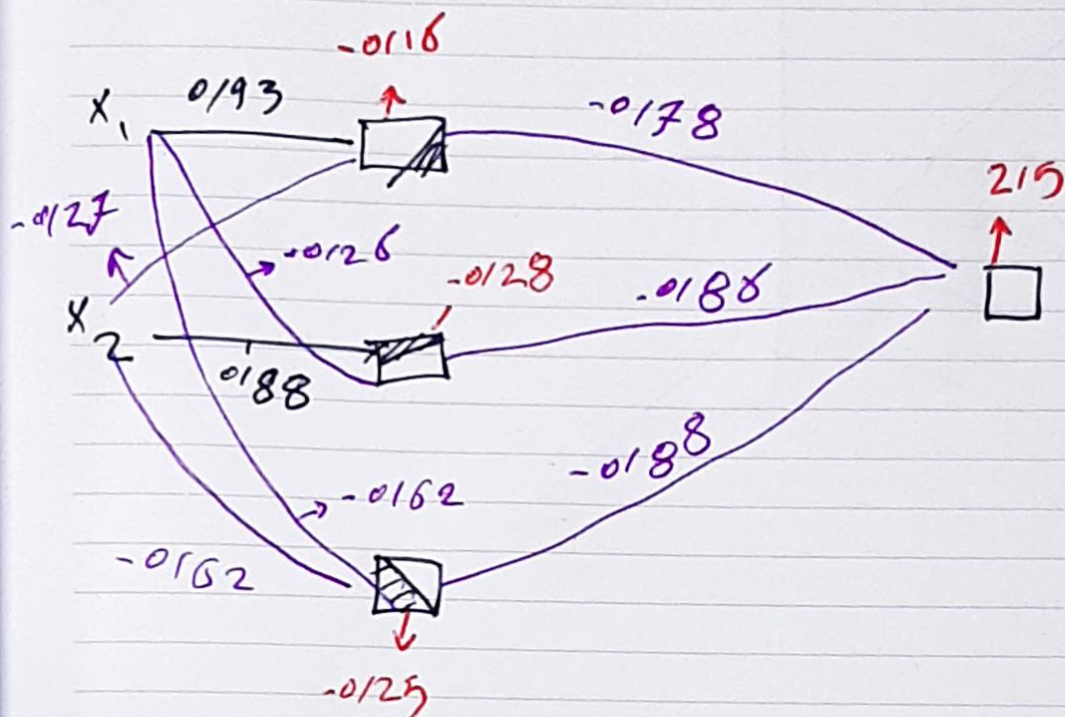 -0/16
X1 0/93 -0/78
2/5
-0/27 -0/26 -0/28 -0/86
X2 0/88
-0/88
-0/62
-0/62
-0/25